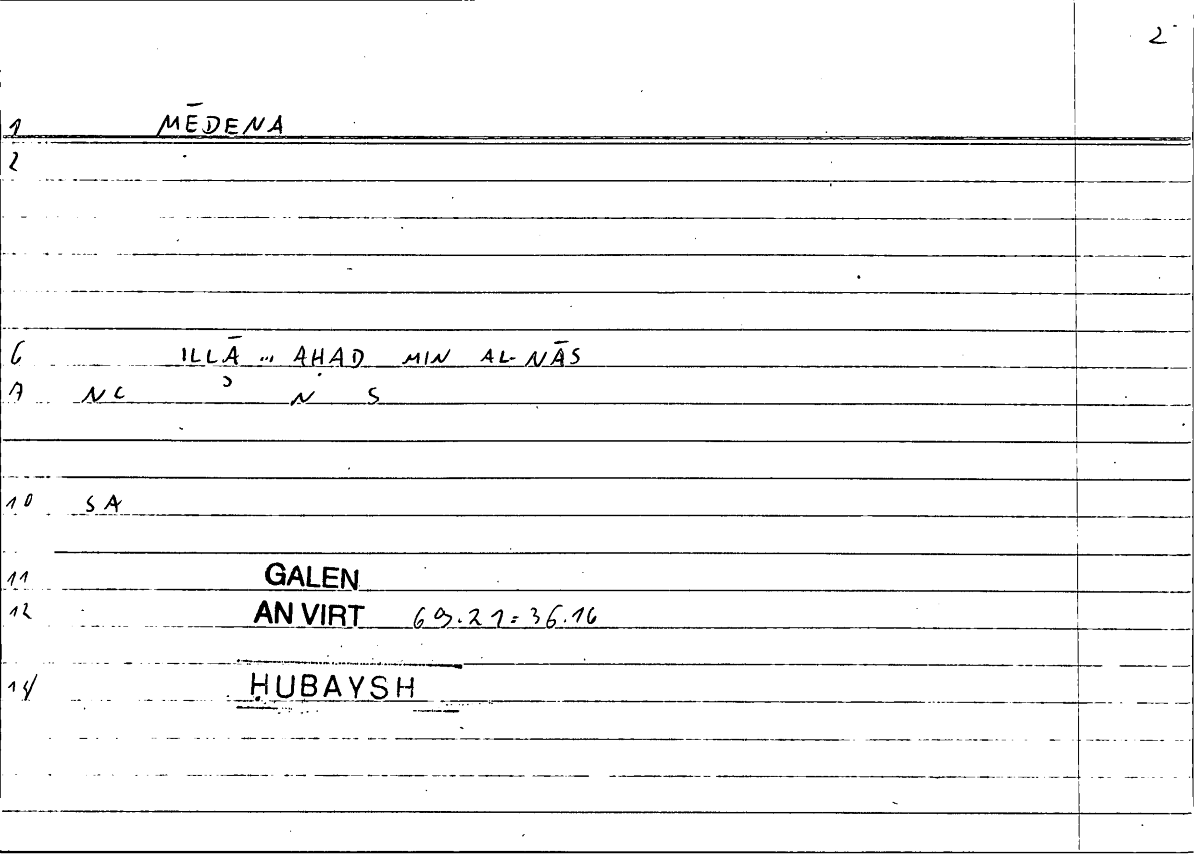 2
1 MĒDENA
2
6 ILLĀ ... AḤAD MIN AL-NĀS
7 NC ʾ N S
10 SA
11 GALEN
12 AN VIRT 69.21=36.16
14 ḤUBAYSH